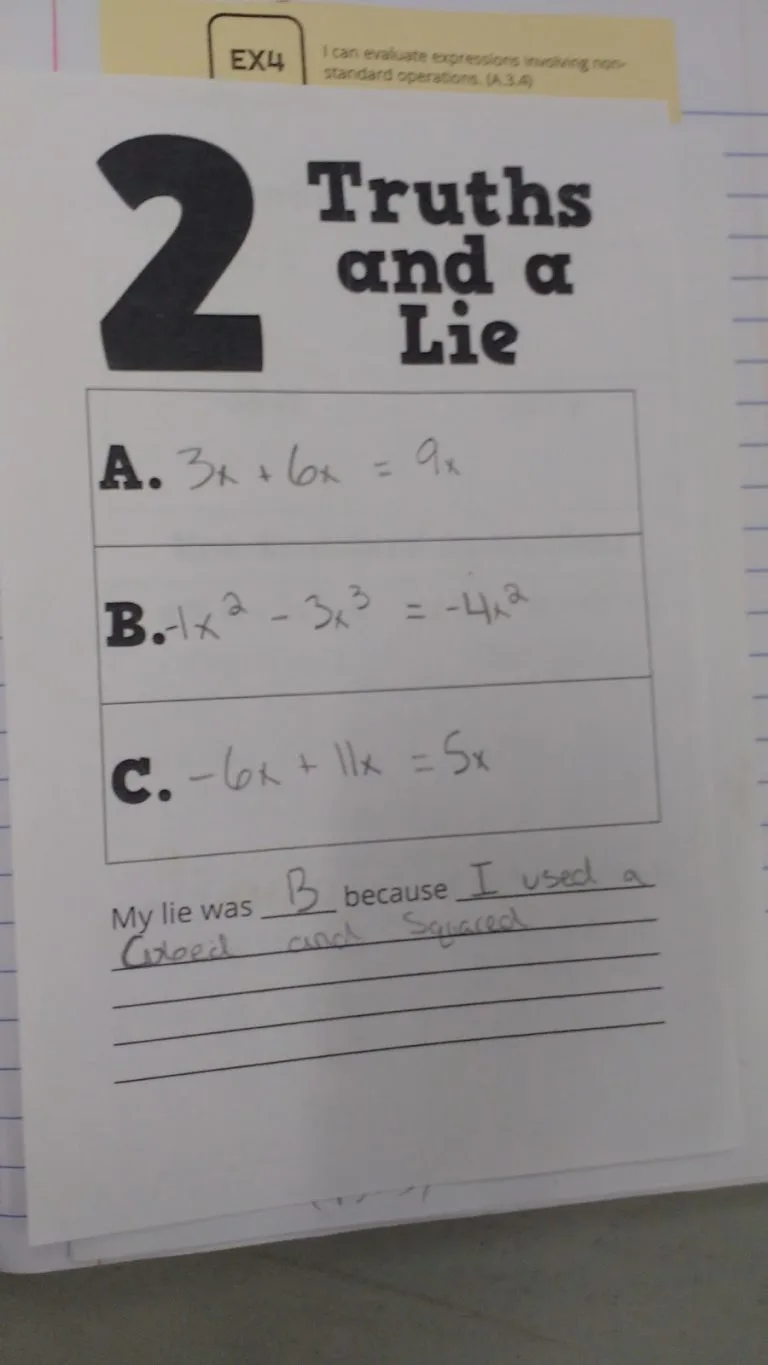 EX4
I can evaluate expressions involving non-
standard operations. (A.3.4)
2
Truths
and a
Lie
A. 3x + 6x = 9x
B. -1x² - 3x³ = -4x²
C. -6x + 11x = 5x
My lie was B because I used a
Cubed and Squared